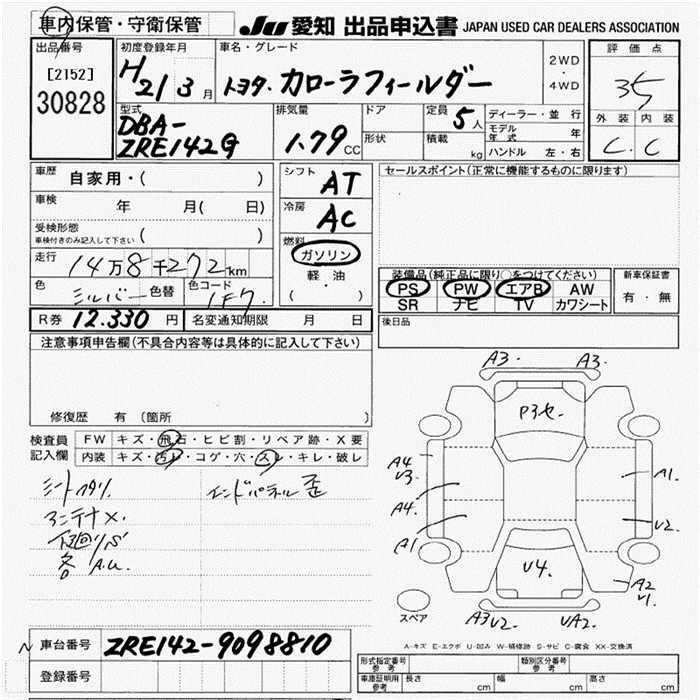 車内保管・守衛保管
JU 愛知 出品申込書 JAPAN USED CAR DEALERS ASSOCIATION
出品番号
[2152]
30828
初度登録年月
H21 3月
車名・グレード
トヨタ. カローラフィールダー
2WD
・
4WD
評価点
35
外装 内装
C. C
型式
DBA-
ZRE142G
排気量
1.79CC
ドア
形状
定員 5人
積載 kg
ディーラー・並行
モデル年式 年
ハンドル 左・右
車歴 自家用・( )
車検 年 月( 日)
受検形態
車検付きのみ記入して下さい ( )
走行 14万8千272km
色 シルバー 色替 色コード 1F7
R券 12.330円 名変通知期限 月 日
シフト AT
冷房 AC
燃料
ガソリン
軽・油
( )
セールスポイント(正常に機能するものに限ります)
装備品(純正品に限り○をつけてください)
PS PW エアB AW
SR ナビ TV カワシート
新車保証書
有・無
後日品
注意事項申告欄(不具合内容等は具体的に記入して下さい)
修復歴 有(箇所 )
検査員
記入欄
FW キズ・飛石・ヒビ割・リペア跡・X要
内装 キズ・汚レ・コゲ・穴・スレ・キレ・破レ
シートヘタリ
アンテナX.
下回りS
各A.U.
インドパネル歪
A3. A3.
P3セ.
A4
V3.
A4.
A1
A1.
U2.
U4.
A2
U1.
A3U2. UA2.
スペア
A-キズ E-エクボ U-凹み W-補修跡 S-サビ C-腐食 XX-交換済
N 車台番号 ZRE142-9098810
登録番号
形式指定番号
参考
類別区分番号
参考
車庫証明用
参考
長さ cm 幅 cm 高さ cm